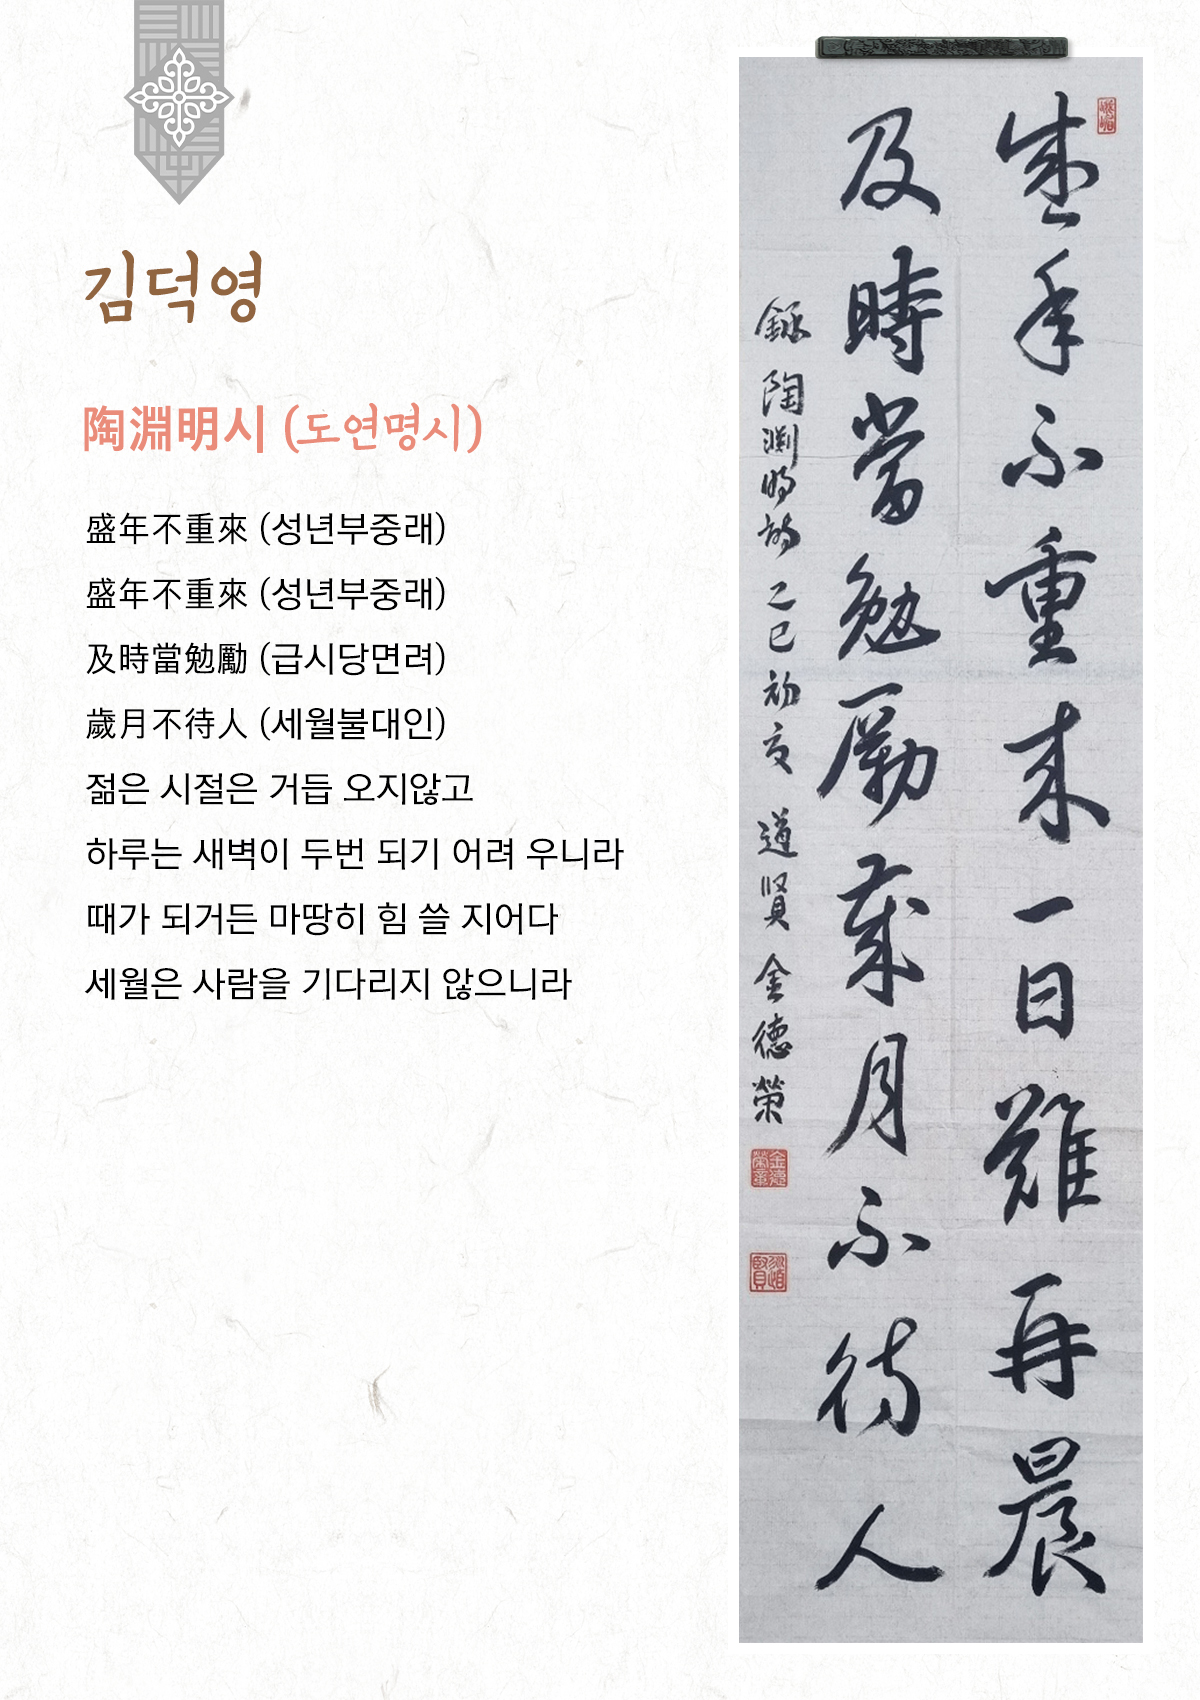 김덕영
陶淵明시 (도연명시)
盛年不重來 (성년부중래)
盛年不重來 (성년부중래)
及時當勉勵 (급시당면려)
歲月不待人 (세월불대인)
젊은 시절은 거듭 오지않고
하루는 새벽이 두번 되기 어려 우니라
때가 되거든 마땅히 힘 쓸 지어다
세월은 사람을 기다리지 않으니라
盛年不重来一日難再晨
及時當勉勵歲月不待人
陶淵明詩 乙巳初夏 道賢 金德榮